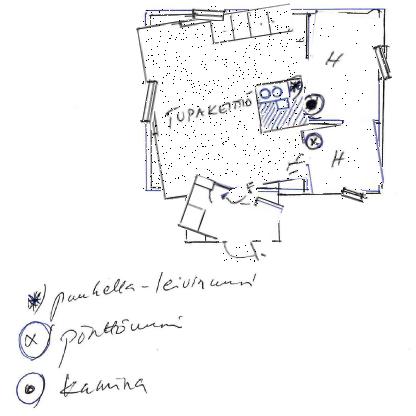 H
TUPAKEITTIÖ
H
puuhella-leivinuuni
pönttöuuni
kamina